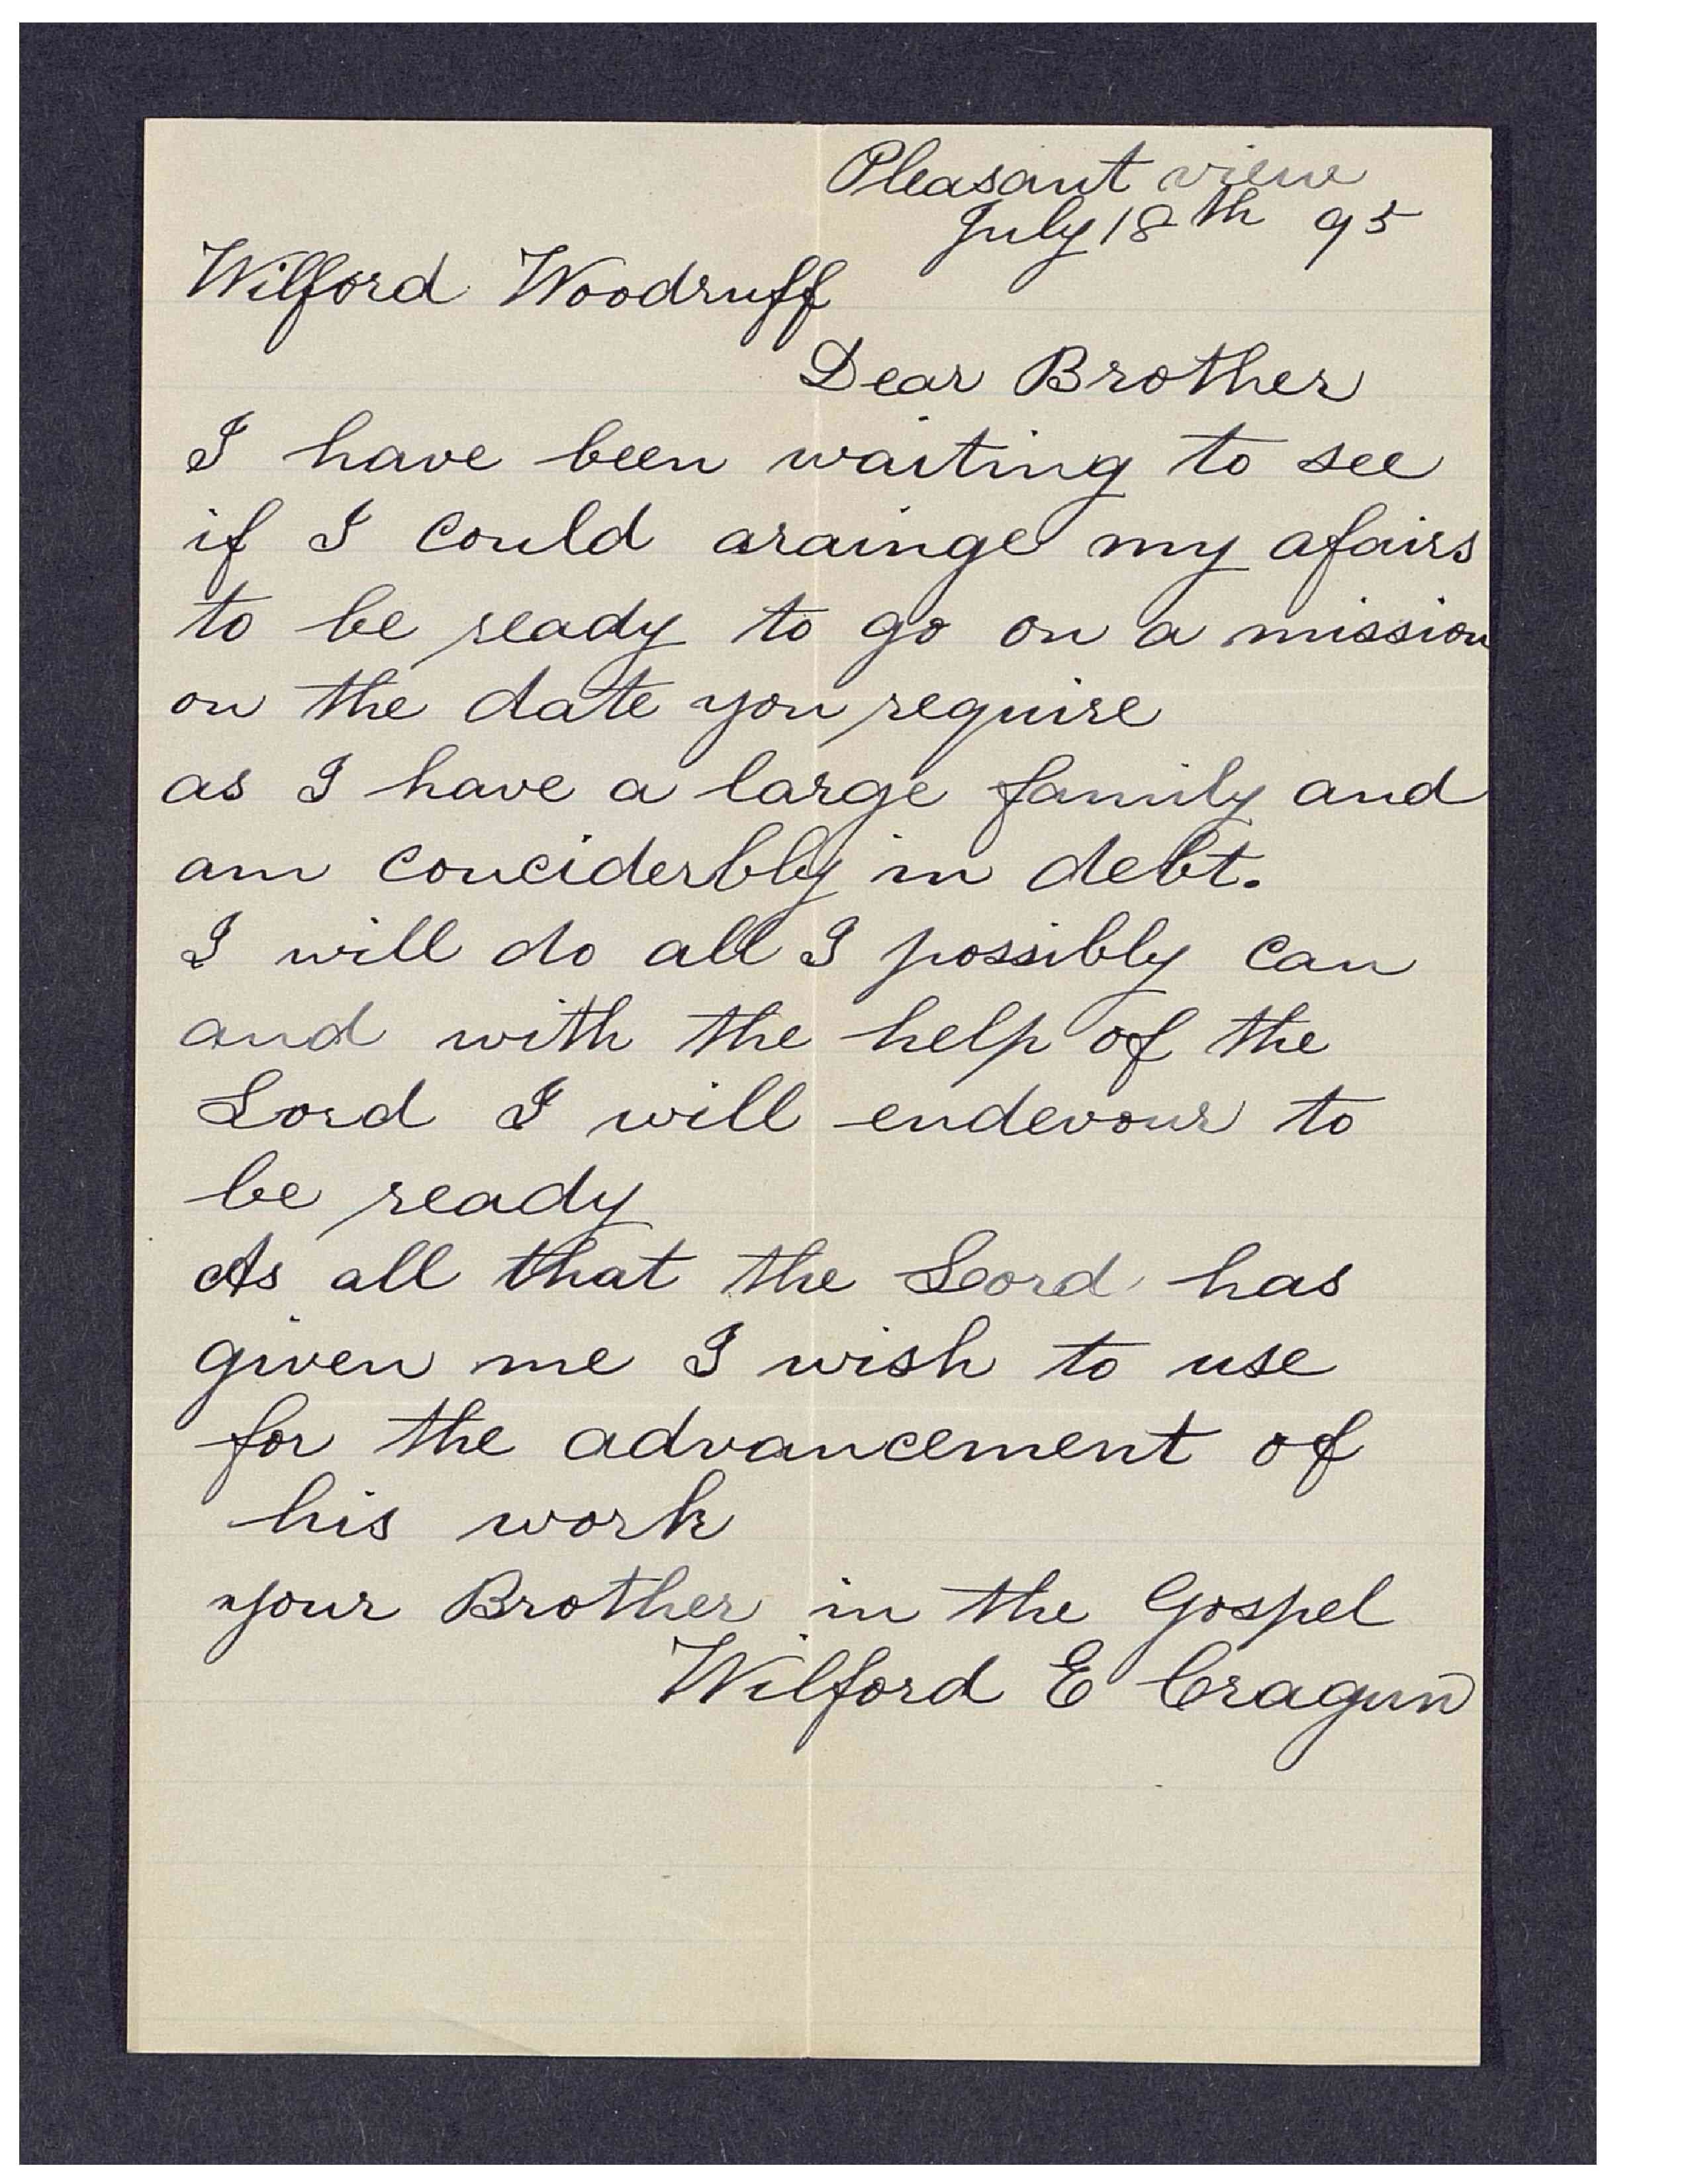 Pleasant view
July 18th 95
Wilford Woodruff
Dear Brother
I have been waiting to see
if I could arainge my afairs
to be ready to go on a mission
on the date you require
as I have a large family and
am conciderbly in debt.
I will do all I possibly can
and with the help of the
Lord I will endevour to
be ready
As all that the Lord has
given me I wish to use
for the advancement of
his work
your Brother in the Gospel
Wilford E Cragun